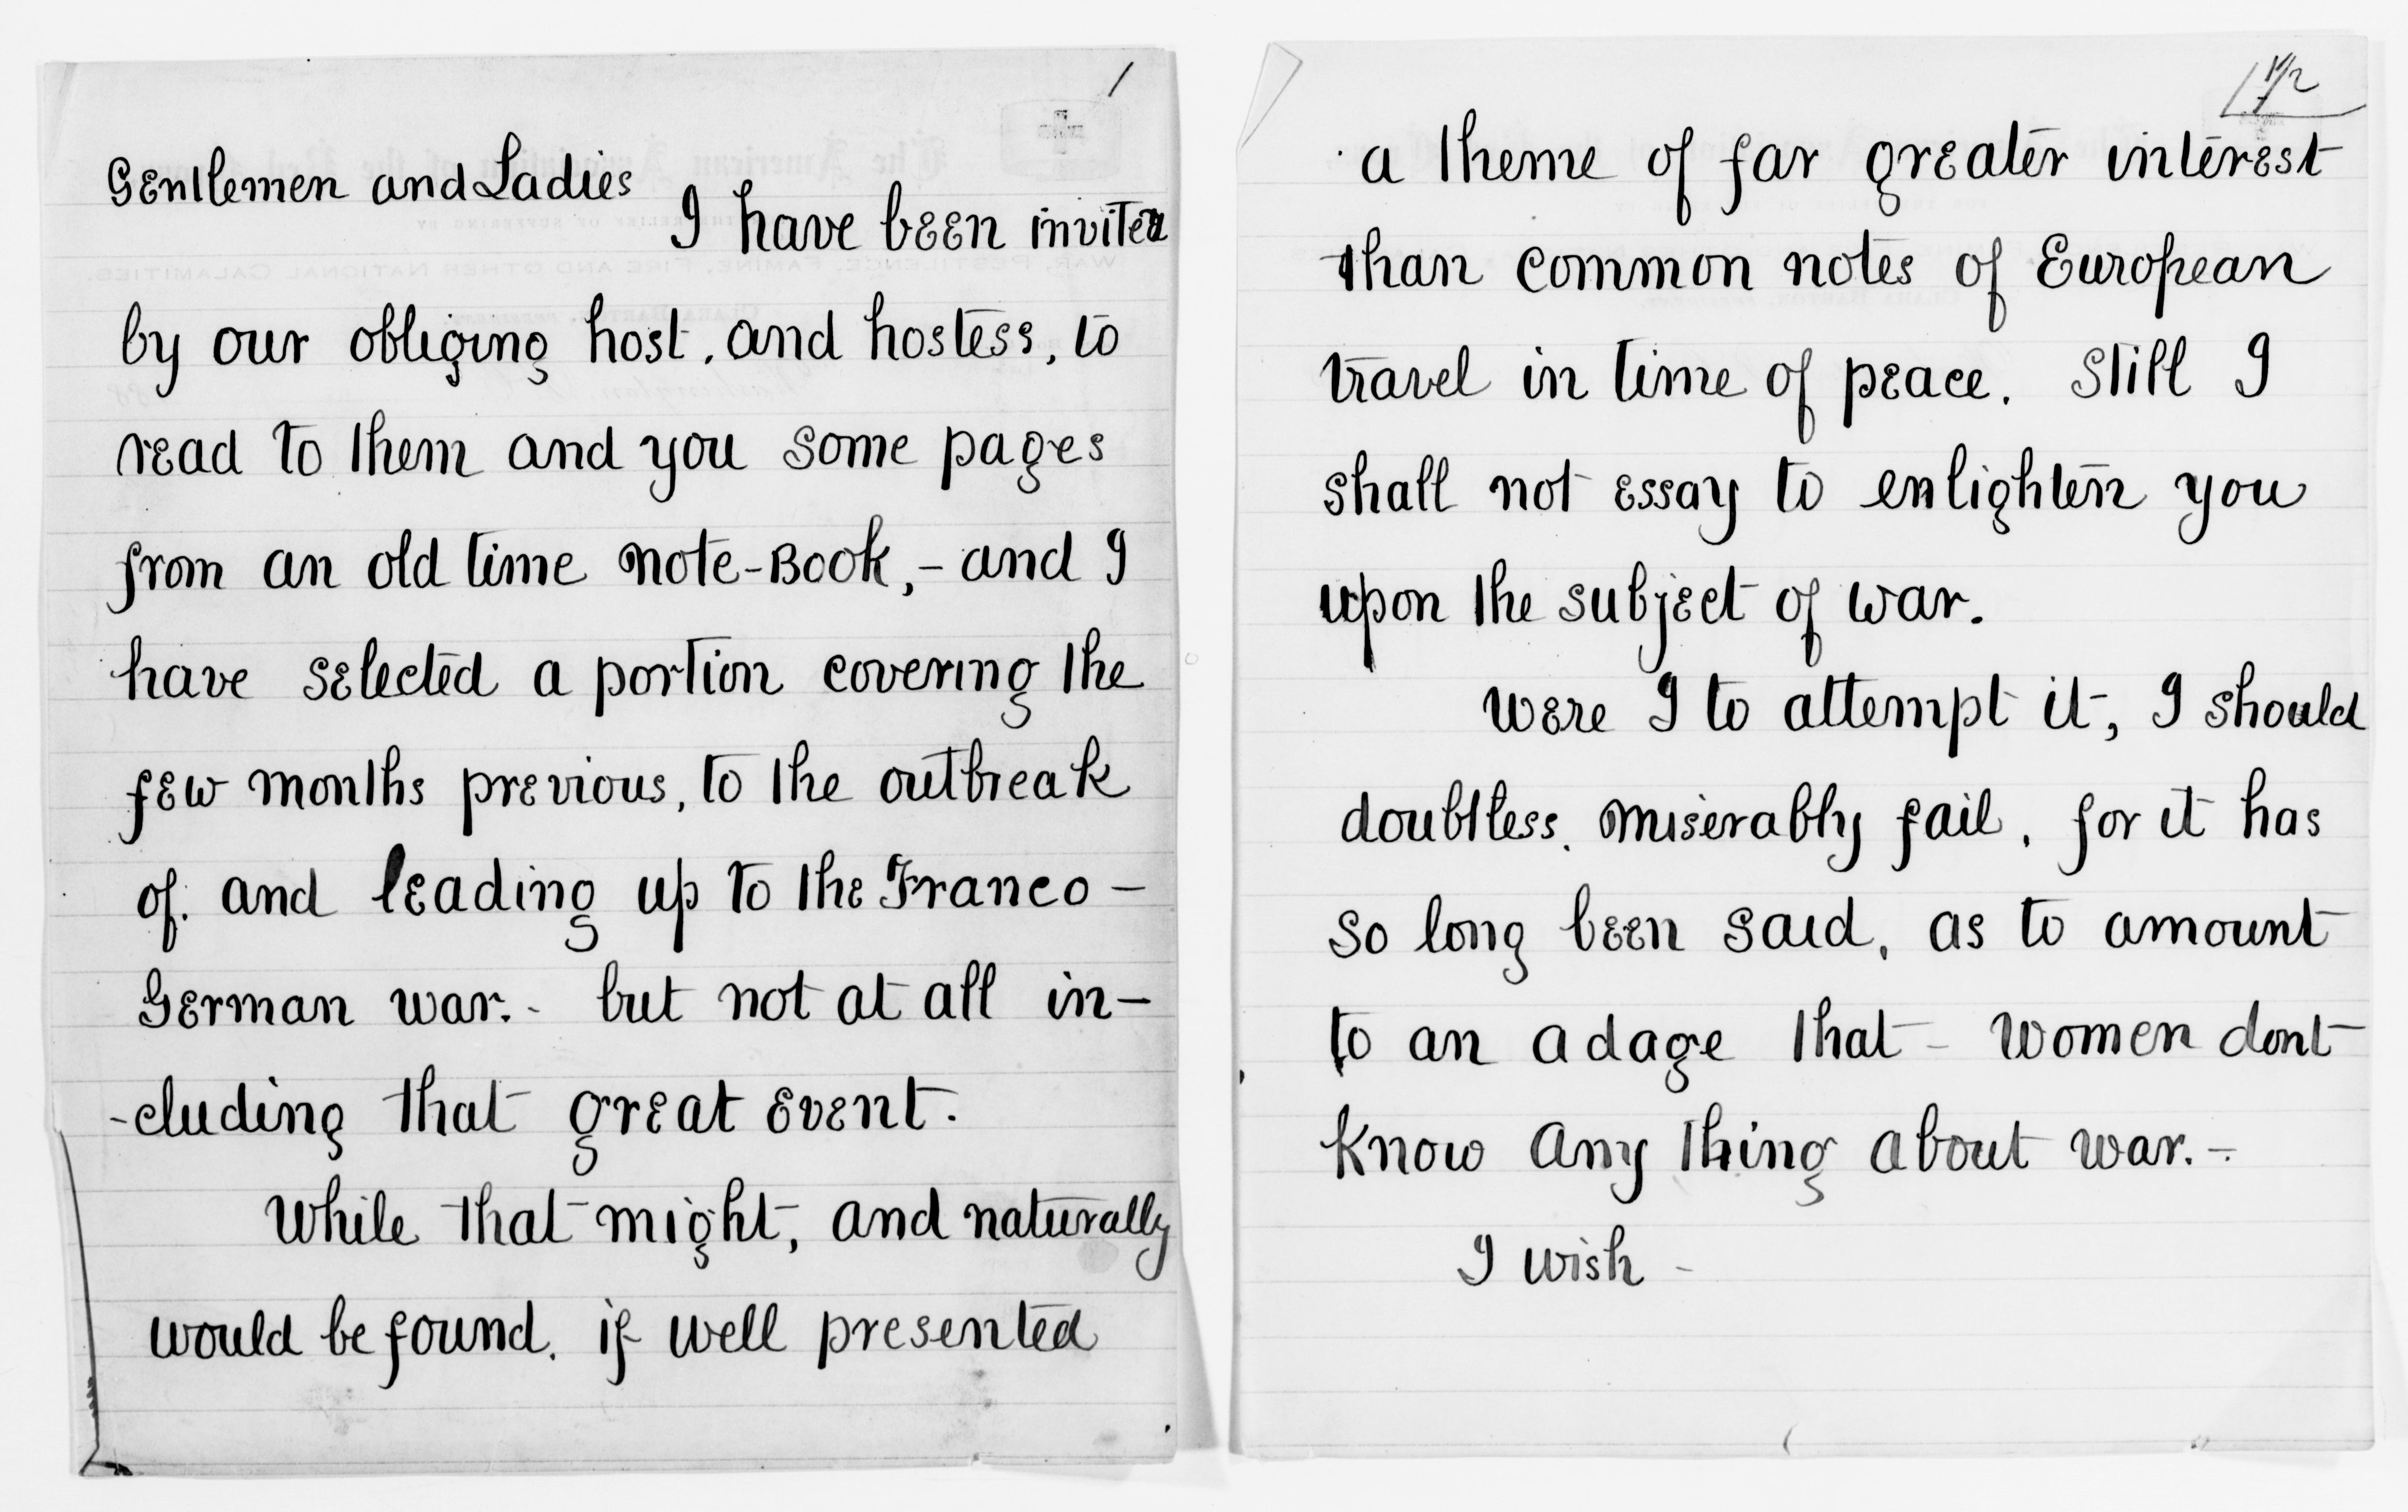 1
Gentlemen and Ladies
I have been invited
by our obliging host, and hostess, to
read to them and you some pages
from an old time note-Book,- and I
have selected a portion covering the
few months previous, to the outbreak
of. and leading up to the Franco-
German war.- but not at all in-
-cluding that great event.
While that might, and naturally
would be found, if well presented
1 1/2
a theme of far greater interest
than common notes of European
travel in time of peace. Still I
shall not essay to enlighten you
upon the subject of war.
Were I to attempt it, I should
doubtless, miserably fail, for it has
so long been said, as to amount
to an adage that - women dont
know any thing about war.-
I wish -